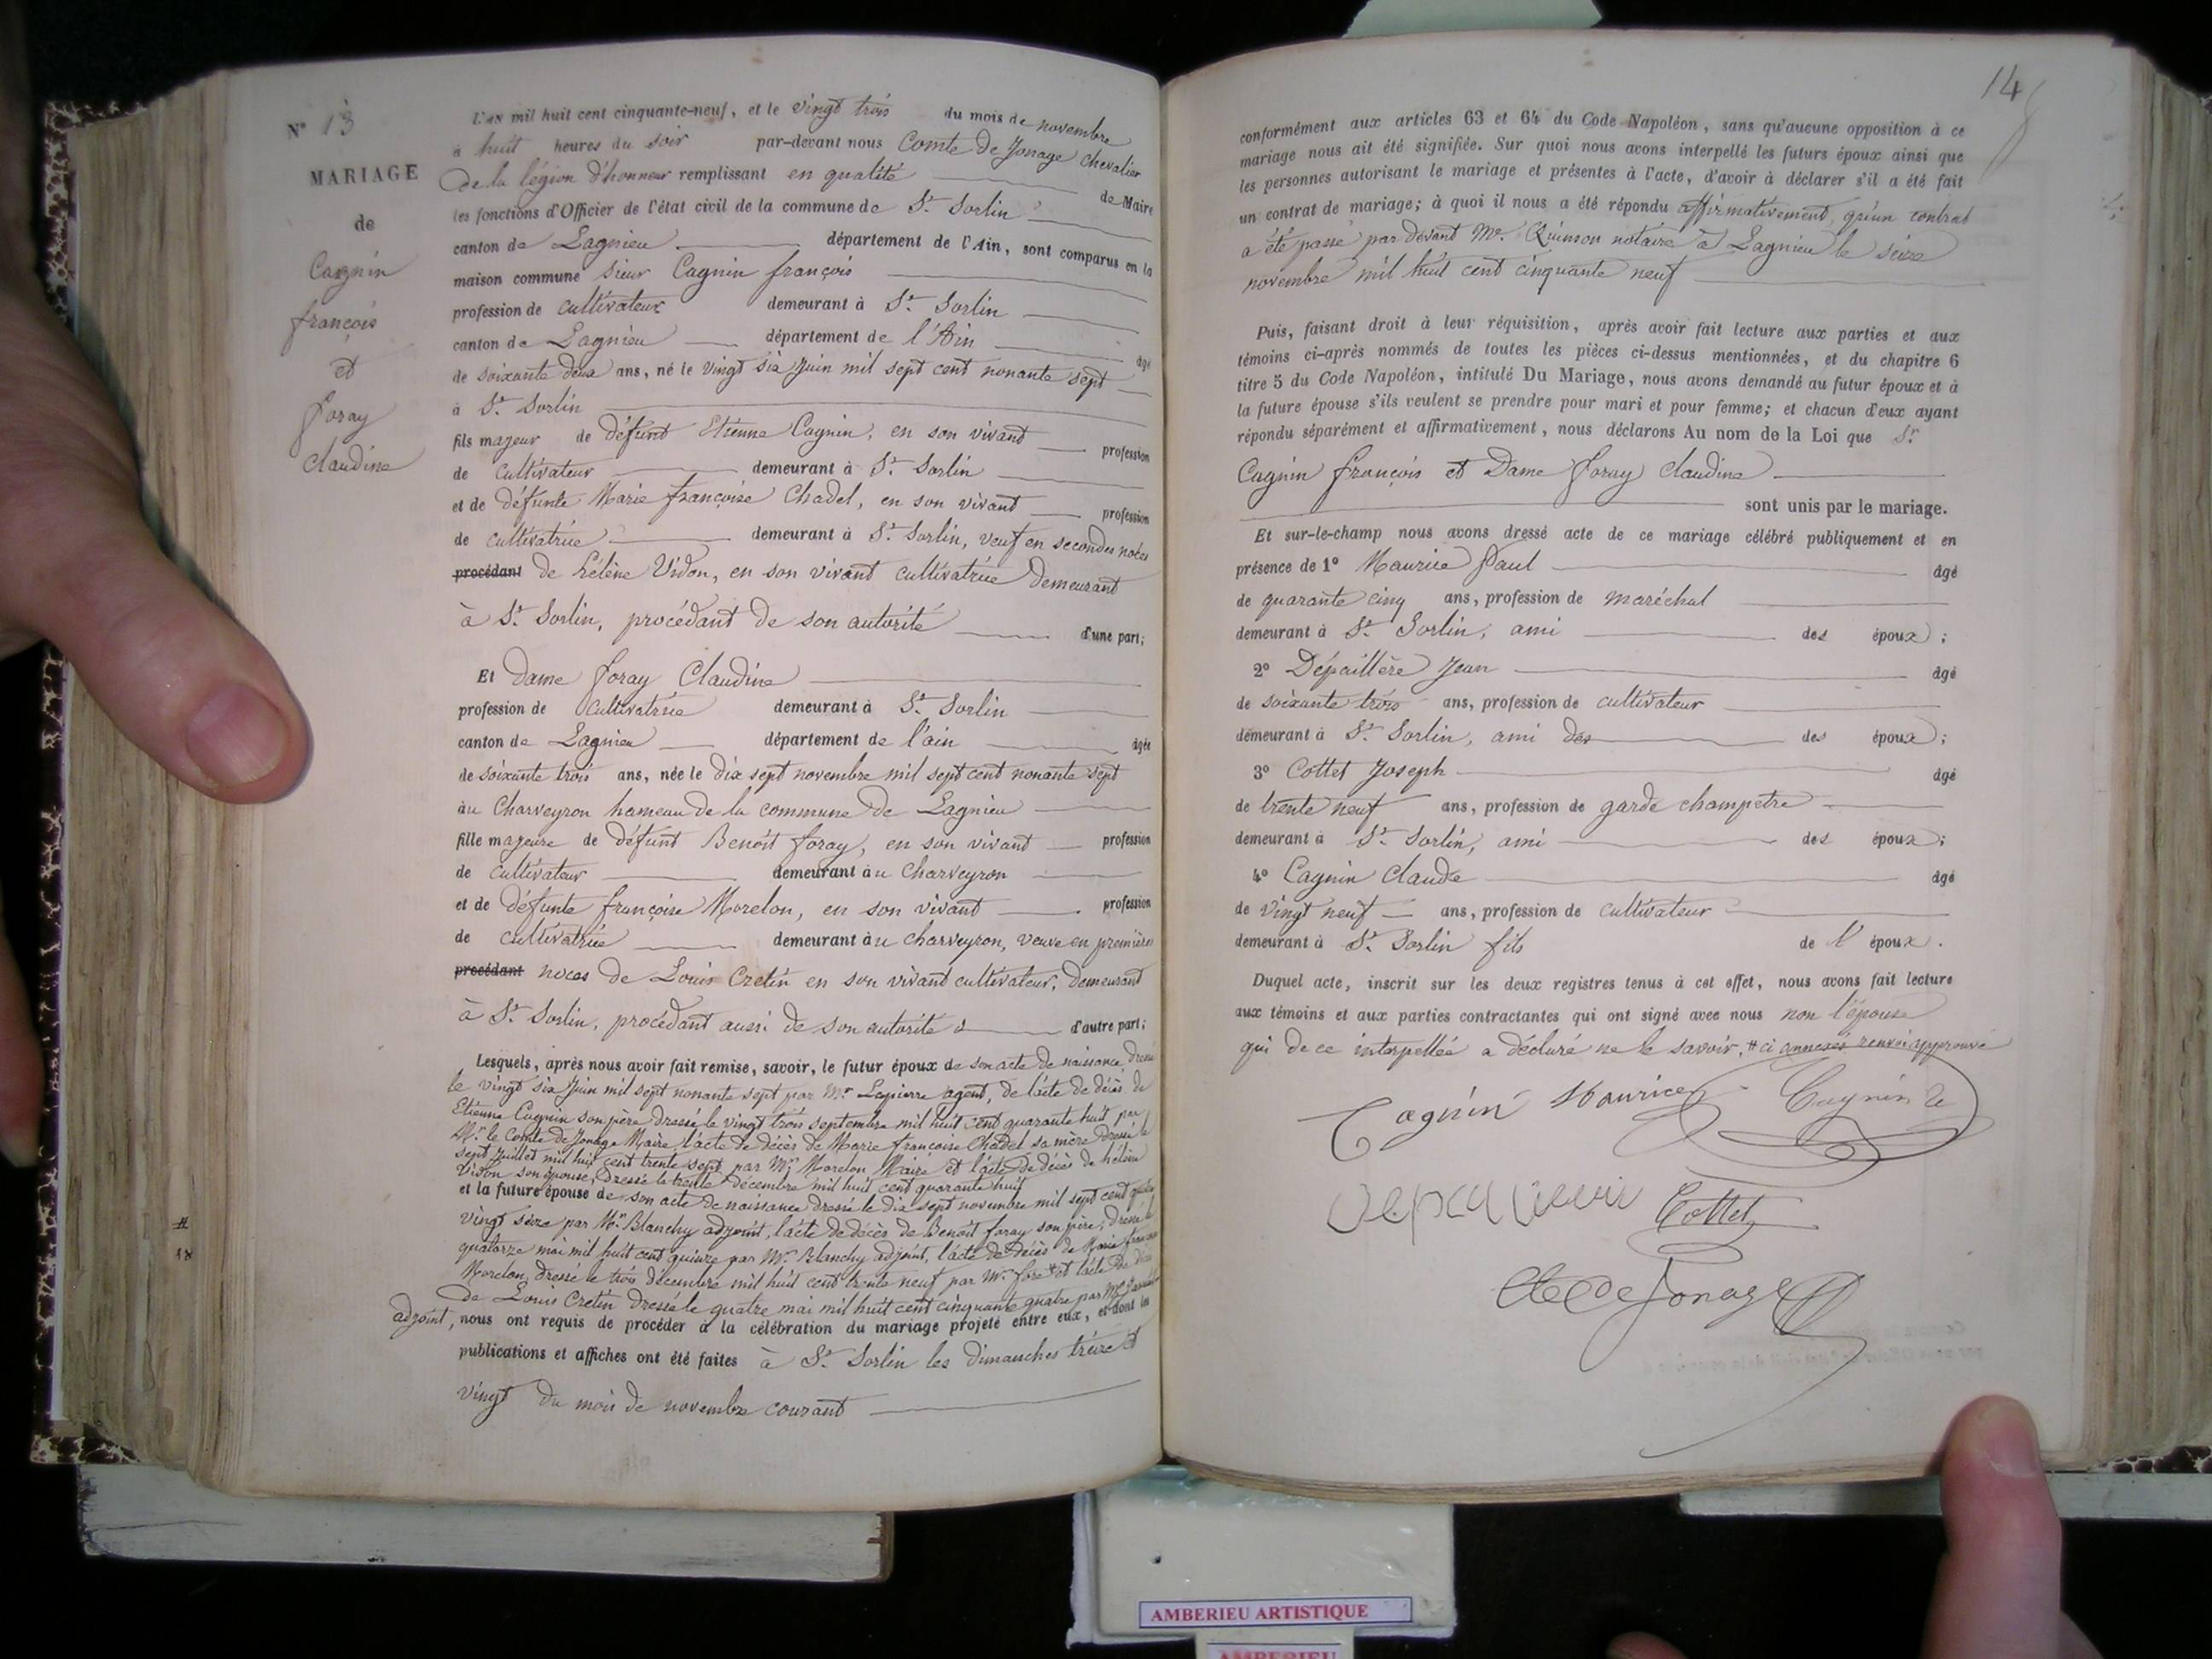 N° 13
MARIAGE
de
Cagnin
françois
et
foray
claudine
L'an mil huit cent cinquante-neuf, et le vingt trois du mois de novembre
à huit heures du soir par-devant nous Comte de Jonage chevalier
de la légion d'honneur remplissant en qualité de Maire
les fonctions d'Officier de l'état civil de la commune de St Sorlin
canton de Lagnieu département de l'Ain, sont comparus en la
maison commune sieur Cagnin françois
profession de cultivateur demeurant à St Sorlin
canton de Lagnieu département de l'Ain âgé
de soixante deux ans, né le vingt six juin mil sept cent nonante sept
à St Sorlin
fils majeur de défunt Etienne Cagnin, en son vivant profession
de cultivateur demeurant à St Sorlin
et de défunte Marie françoise Chadel, en son vivant profession
de cultivatrice demeurant à St Sorlin, veuf en secondes noces
procédant de hélène Vidon, en son vivant cultivatrice demeurant
à St Sorlin, procédant de son autorité d'une part;
Et Dame foray Claudine
profession de cultivatrice demeurant à St Sorlin
canton de Lagnieu département de l'ain âgée
de soixante trois ans, née le dix sept novembre mil sept cent nonante sept
au Charveyron hameau de la commune de Lagnieu
fille majeure de défunt Benoît foray, en son vivant profession
de cultivateur demeurant au Charveyron
et de défunte françoise Morelon, en son vivant profession
de cultivatrice demeurant au charveyron, veuve en premières
procédant noces de Louis Cretin en son vivant cultivateur, demeurant
à St Sorlin, procédant aussi de son autorité d'autre part;
Lesquels, après nous avoir fait remise, savoir, le futur époux de son acte de naissance, dressé
le vingt six juin mil sept nonante sept par Mr Lapierre agent, de l'acte de décès de
Etienne Cagnin son père dressé le vingt trois septembre mil huit cent quarante huit par
Mr le Comte de Jonage Maire, l'acte de décès de Marie françoise Chadel sa mère dressé le
sept juillet mil huit cent trente sept par Mr Morelon Maire et l'acte de décès de hélène
Vidon son épouse, dressé le trente décembre mil huit cent quarante huit
et la future épouse de son acte de naissance dressé le dix sept novembre mil sept cent quatre
vingt seize par Mr Blanchy adjoint, l'acte de décès de Benoît foray son père, dressé le
quatorze mai mil huit cent quinze par Mr Blanchy adjoint, l'acte de décès de Marie françoise
Morelon, dressé le trois décembre mil huit cent trente neuf par Mr fore # et l'acte de décès
de Louis Cretin dressé le quatre mai mil huit cent cinquante quatre par Mr
adjoint, nous ont requis de procéder à la célébration du mariage projeté entre eux, et dont les
publications et affiches ont été faites à St Sorlin les dimanches treize et
vingt du mois de novembre courant
14
conformément aux articles 63 et 64 du Code Napoléon, sans qu'aucune opposition à ce
mariage nous ait été signifiée. Sur quoi nous avons interpellé les futurs époux ainsi que
les personnes autorisant le mariage et présentes à l'acte, d'avoir à déclarer s'il a été fait
un contrat de mariage; à quoi il nous a été répondu affirmativement, qu'un contrat
a été passé par devant Me Quinson notaire à Lagnieu le seize
novembre mil huit cent cinquante neuf
Puis, faisant droit à leur réquisition, après avoir fait lecture aux parties et aux
témoins ci-après nommés de toutes les pièces ci-dessus mentionnées, et du chapitre 6
titre 5 du Code Napoléon, intitulé Du Mariage, nous avons demandé au futur époux et à
la future épouse s'ils veulent se prendre pour mari et pour femme; et chacun d'eux ayant
répondu séparément et affirmativement, nous déclarons Au nom de la Loi que Sr
Cagnin françois et Dame foray claudine
sont unis par le mariage.
Et sur-le-champ nous avons dressé acte de ce mariage célébré publiquement et en
présence de 1° Maurice Paul âgé
de quarante cinq ans, profession de maréchal
demeurant à St Sorlin, ami des époux;
2° Dépaillère Jean âgé
de soixante trois ans, profession de cultivateur
demeurant à St Sorlin, ami des des époux;
3° Cottet Joseph âgé
de trente neuf ans, profession de garde champetre
demeurant à St Sorlin, ami des époux;
4° Cagnin Claude âgé
de vingt neuf ans, profession de cultivateur
demeurant à St Sorlin fils de l'époux.
Duquel acte, inscrit sur les deux registres tenus à cet effet, nous avons fait lecture
aux témoins et aux parties contractantes qui ont signé avec nous non l'épouse
qui de ce interpellée a déclaré ne le savoir, # ci annexés renvoi approuvé
Cagnin Maurice Cagnin
Cottet
Cte de Jonage
AMBERIEU ARTISTIQUE
AMBERIEU